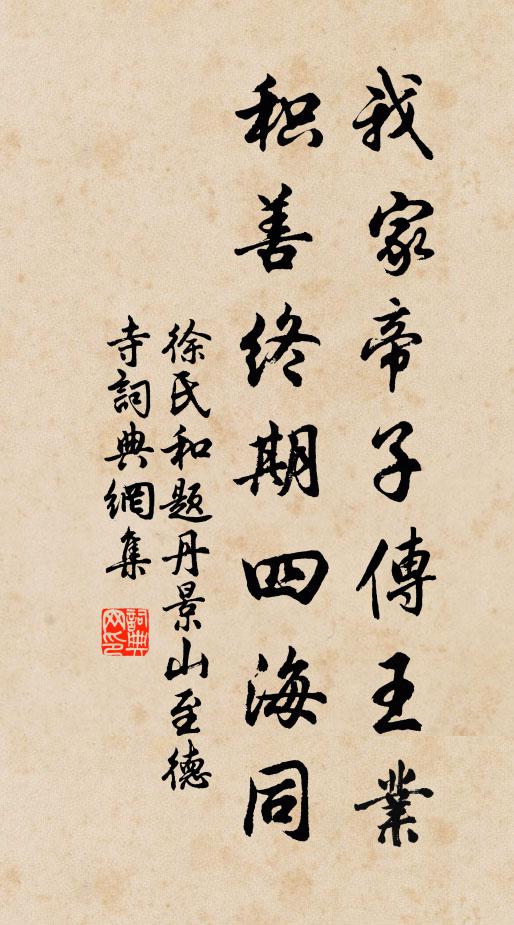 我家帝子傳王業
积善终期四海同
徐氏和题丹景山至德
寺詞典網集
詞典
网印